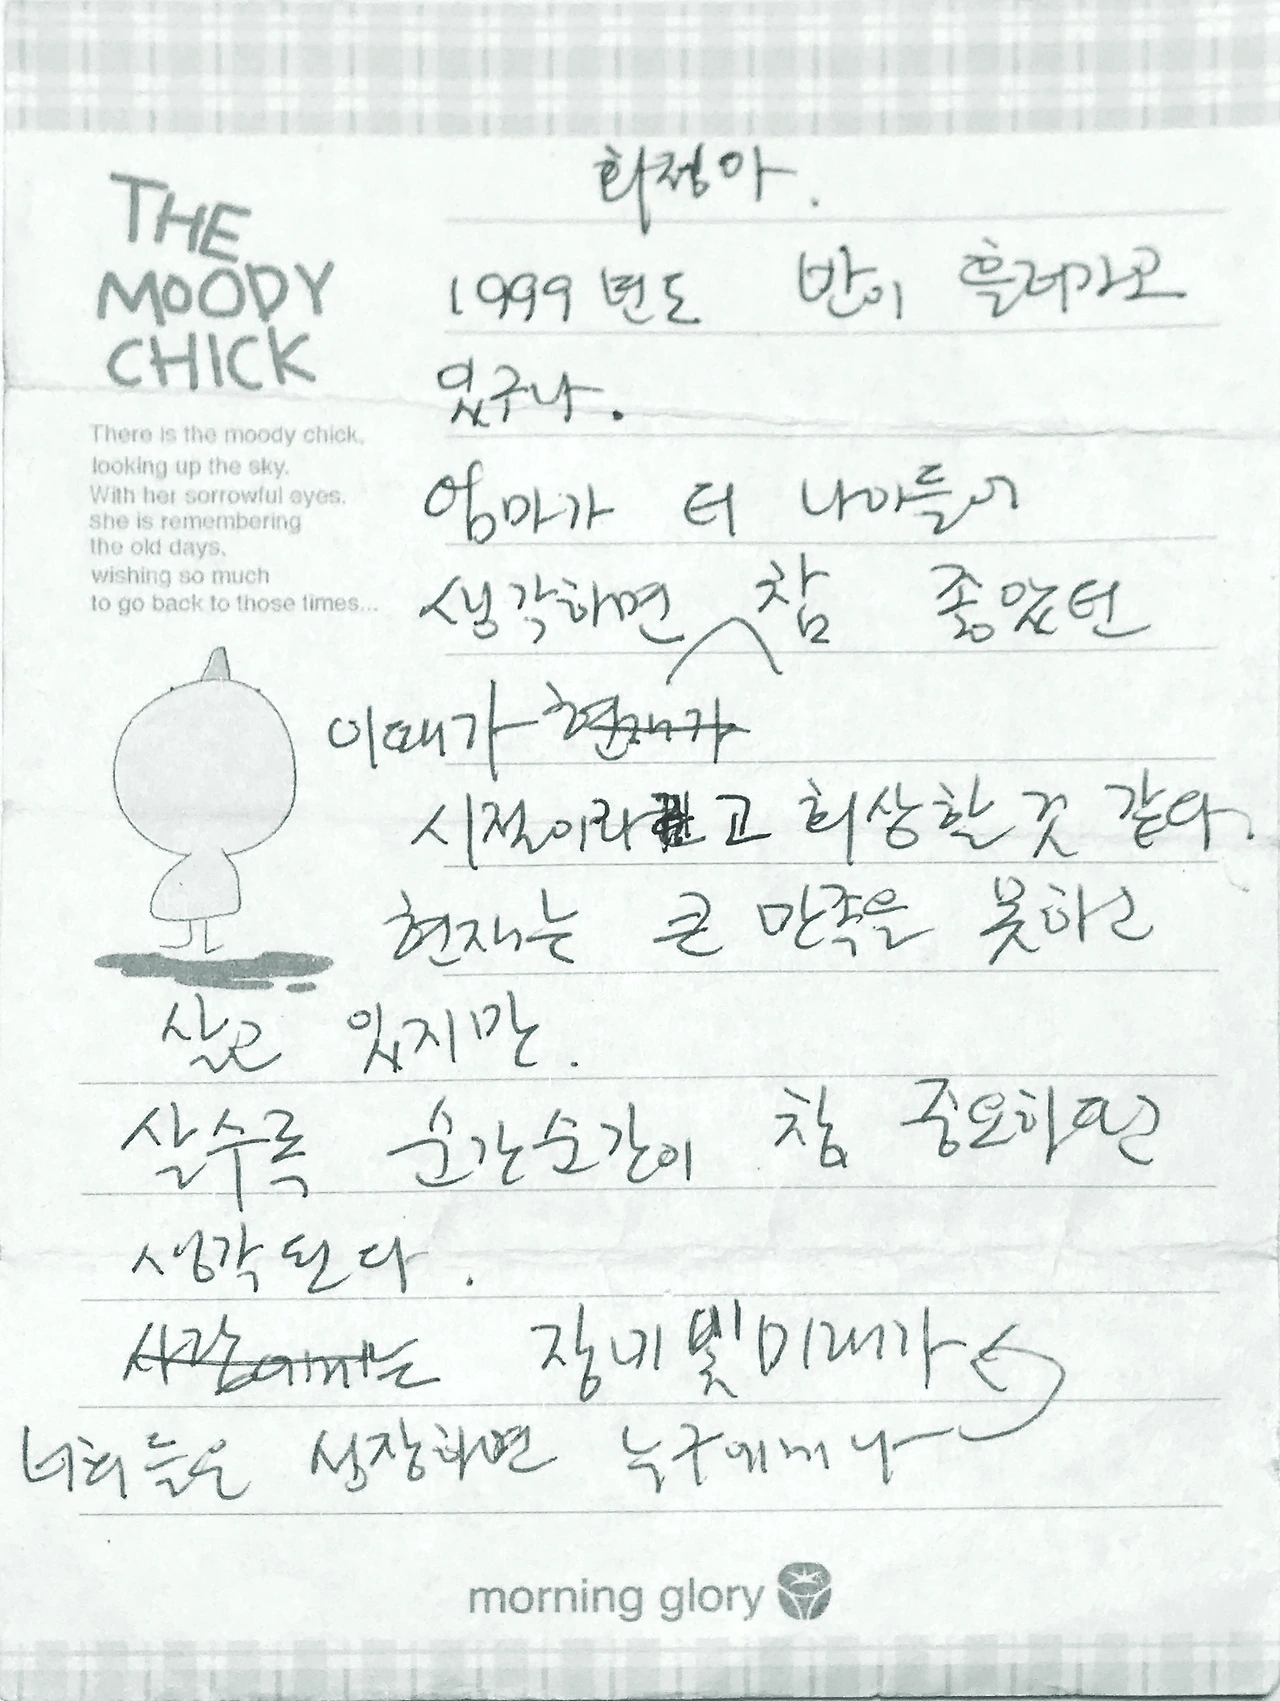 THE
MOODY
CHICK
There is the moody chick,
looking up the sky.
With her sorrowful eyes,
she is remembering
the old days,
wishing so much
to go back to those times...
화정아.
1999년도 반이 흘러가고
있구나.
엄마가 더 나이들어
생각하면 참 좋았던
이때가 현재가
시절이라고 회상할 것 같다.
현재는 큰 만족을 못하고
살고 있지만.
살수록 순간순간이 참 중요하면
생각된다.
사람에게는 장미빛미래가
너희들은 성장하면 누구에게나
morning glory